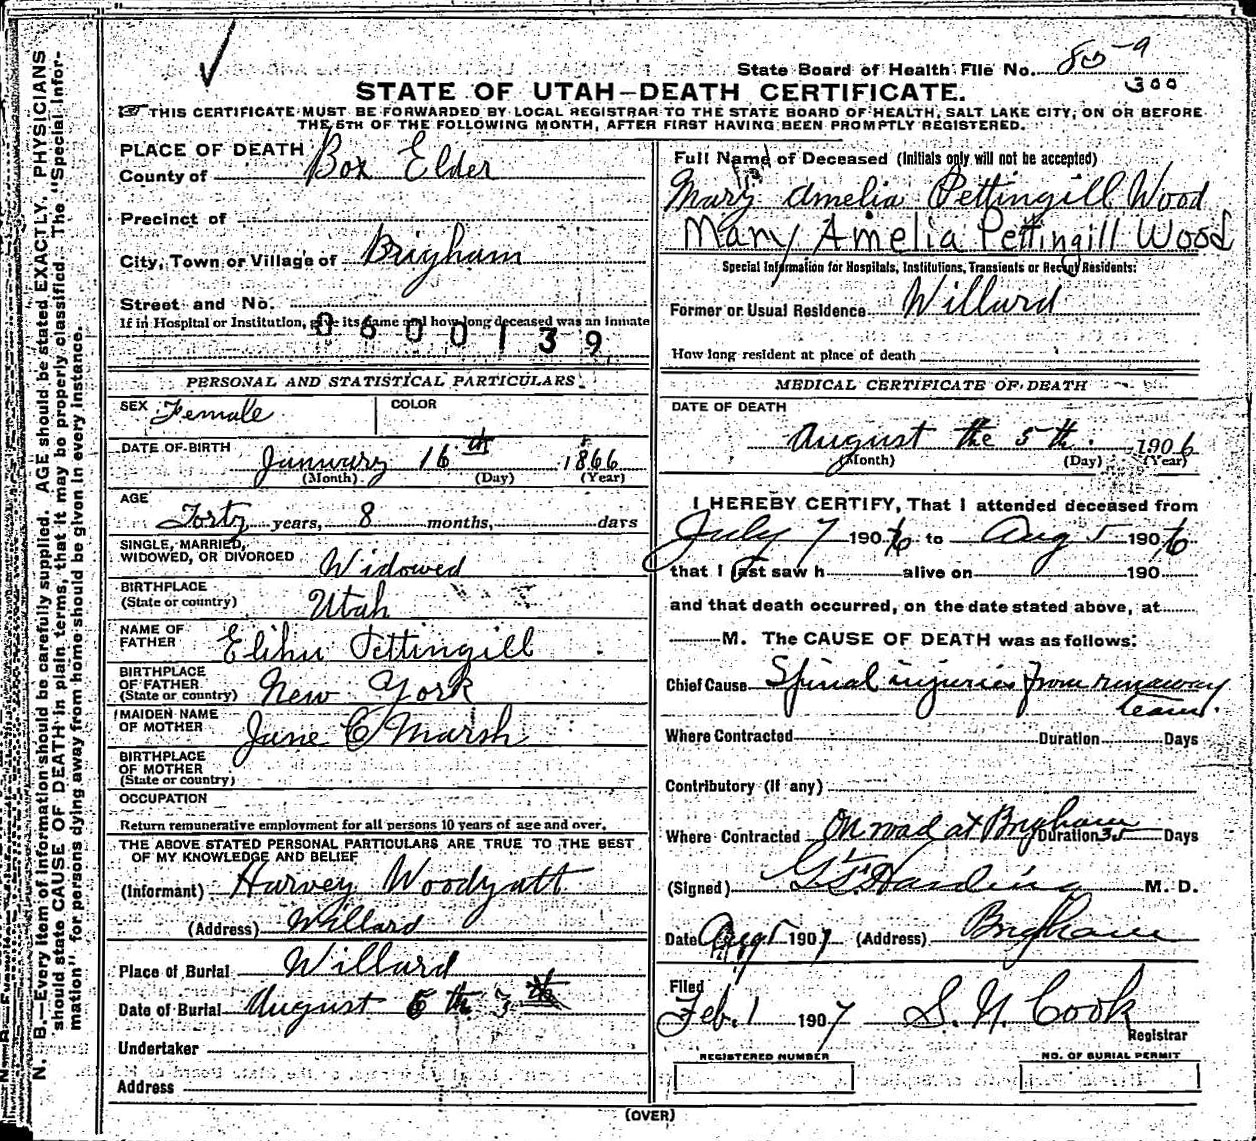 State Board of Health File No. 85-9
300
STATE OF UTAH—DEATH CERTIFICATE.
THIS CERTIFICATE MUST BE FORWARDED BY LOCAL REGISTRAR TO THE STATE BOARD OF HEALTH, SALT LAKE CITY, ON OR BEFORE
THE 5TH OF THE FOLLOWING MONTH, AFTER FIRST HAVING BEEN PROMPTLY REGISTERED.
N. B.—Every item of information should be carefully supplied. AGE should be stated EXACTLY. PHYSICIANS
should state CAUSE OF DEATH in plain terms, that it may be properly classified. The "Special Infor-
mation" for persons dying away from home should be given in every instance.
PLACE OF DEATH
County of Box Elder
Precinct of
City, Town or Village of Brigham
Street and No.
If in Hospital or Institution, give its name and how long deceased was an inmate
0600139
PERSONAL AND STATISTICAL PARTICULARS.
SEX Female COLOR
DATE OF BIRTH January 16th 1866
(Month) (Day) (Year)
AGE Forty years, 8 months, days
SINGLE, MARRIED,
WIDOWED, OR DIVORCED Widowed
BIRTHPLACE
(State or country) Utah
NAME OF
FATHER Elihu Pettingill
BIRTHPLACE
OF FATHER
(State or country) New York
MAIDEN NAME
OF MOTHER Jane C Marsh
BIRTHPLACE
OF MOTHER
(State or country)
OCCUPATION
Return remunerative employment for all persons 10 years of age and over.
THE ABOVE STATED PERSONAL PARTICULARS ARE TRUE TO THE BEST
OF MY KNOWLEDGE AND BELIEF
(Informant) Harvey Woodyatt
(Address) Willard
Place of Burial Willard
Date of Burial August 6 th
Undertaker
Address
Full Name of Deceased (Initials only will not be accepted)
Mary Amelia Pettingill Wood
Mary Amelia Pettingill Wood
Special Information for Hospitals, Institutions, Transients or Recent Residents:
Former or Usual Residence Willard
How long resident at place of death
MEDICAL CERTIFICATE OF DEATH
DATE OF DEATH
August the 5 th. 1906
(Month) (Day) (Year)
I HEREBY CERTIFY, That I attended deceased from
July 7 1906 to Aug 5 1906
that I last saw h alive on 190
and that death occurred, on the date stated above, at
M. The CAUSE OF DEATH was as follows:
Chief Cause Spinal injuries from runaway
team.
Where Contracted Duration Days
Contributory (If any)
Where Contracted On road at Brigham Duration 35 Days
(Signed) Harding M. D.
Date Aug 5 1907 (Address) Brigham
Filed
Feb. 1 1907 S. N. Cook
Registrar
REGISTERED NUMBER NO. OF BURIAL PERMIT
(OVER)